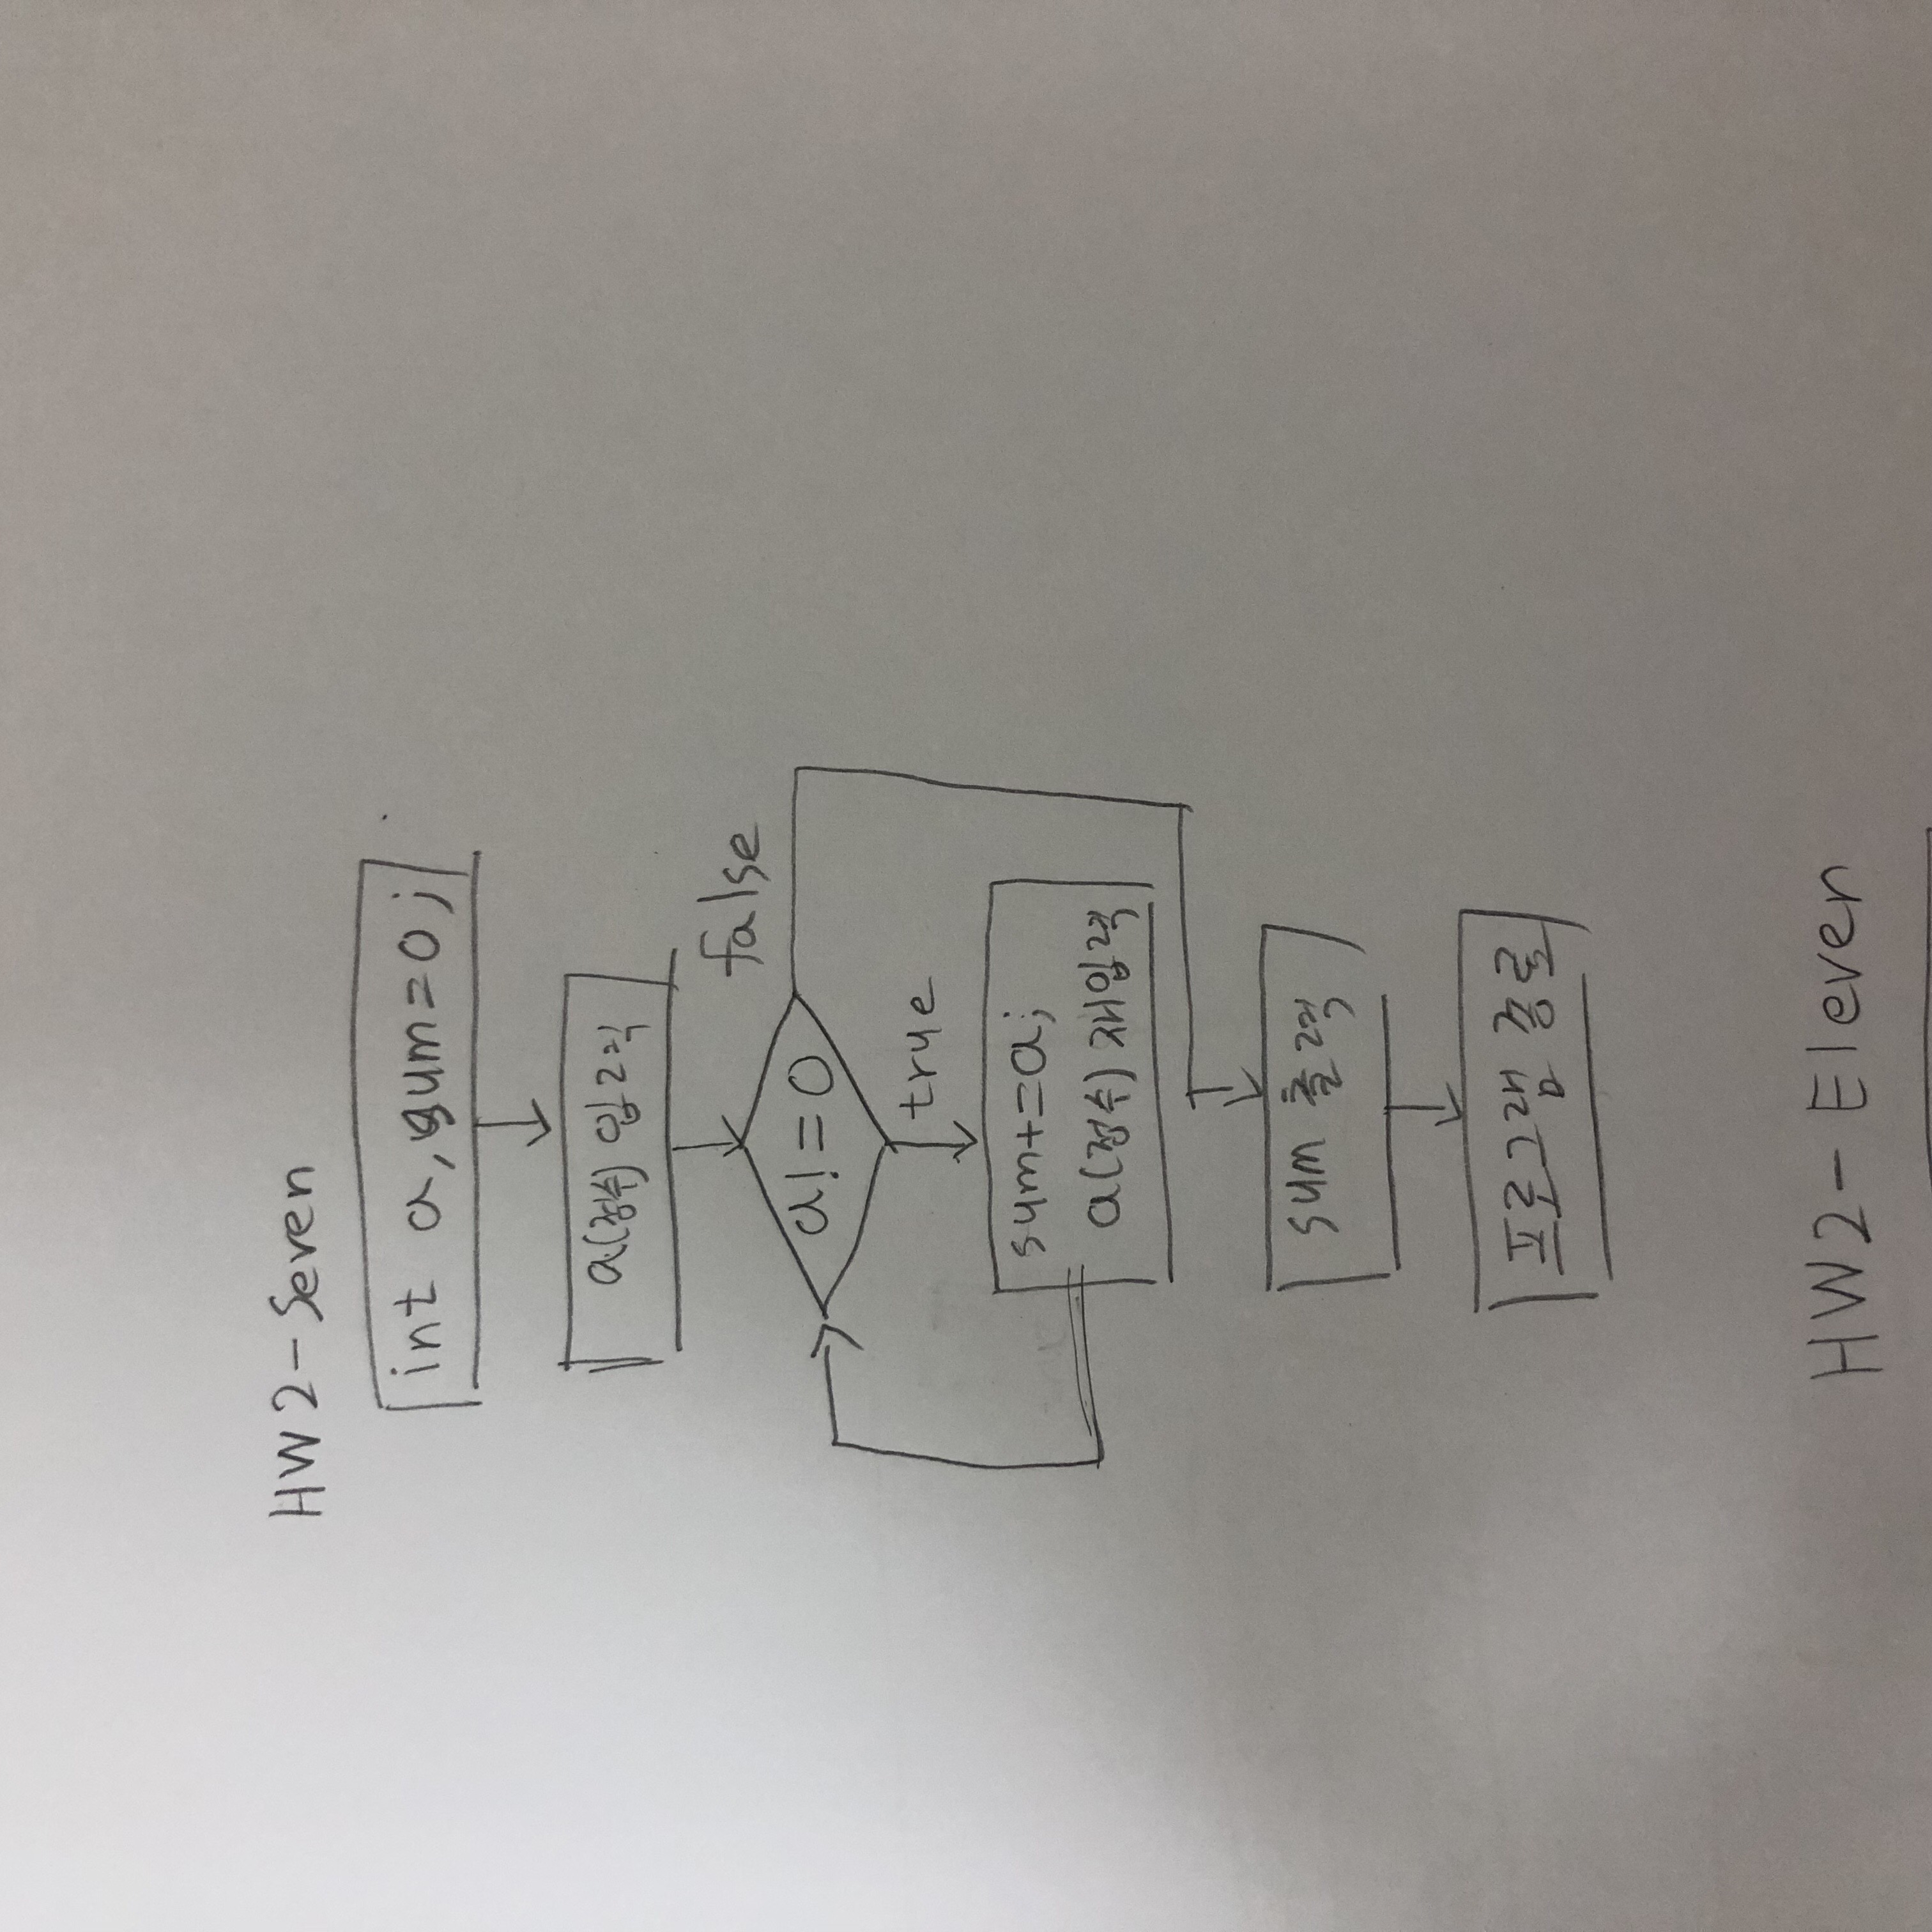 HW2-Seven
int a, sum=0;
a(정수) 입력
false
a!=0
true
sum+=a;
a(정수) 재입력
sum 출력
프로그램 종료
HW2-Eleven